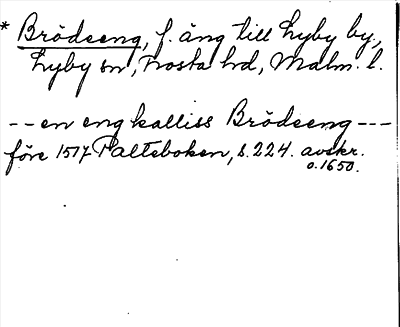 * Brödseng, f. äng till Lyby by,
Lyby sn, Frosta hd, Malm. l.
-- en eng kalliss Brödseng ---
före 1517 Palteboken, s. 224. avskr.
o. 1650.